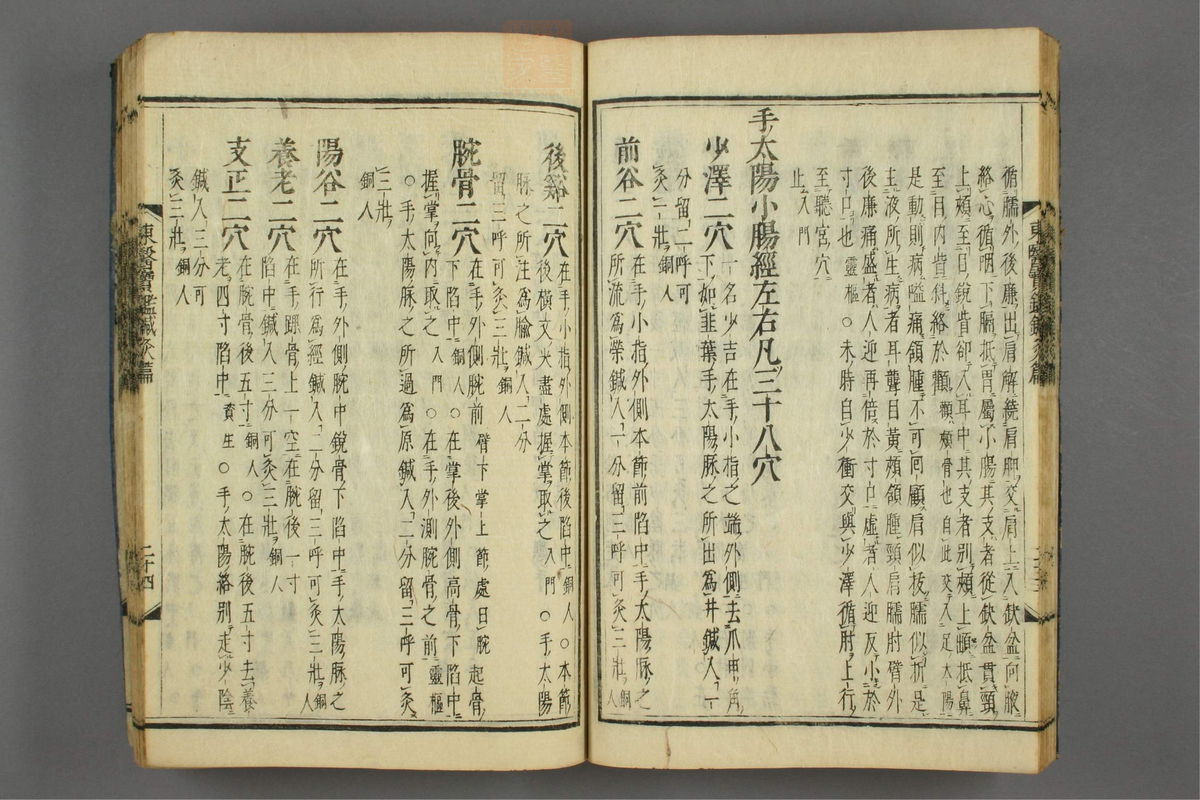 循臑外後廉出肩解繞肩胛交肩上入缺盆向腋
絡心循咽下膈抵胃屬小腸其支者從缺盆貫頸
上頰至目銳眥卻入耳中其支者別頰上䪼抵鼻
至目內眥斜絡於顴顴頰骨也自此交入足太陽
是動則病嗌痛頷腫不可回顧肩似拔臑似折是
主液所生病者耳聾目黃頰頷腫頸肩臑肘臂外
後廉痛盛者人迎再倍於寸口虛者人迎反小於
寸口也靈樞○未時自少衝交與少澤循肘上行
至聽宮穴
止入門
手太陽小腸經左右凡三十八穴
少澤二穴一名少吉在手小指之端外側去爪甲角
下如韭葉手太陽脉之所出爲井鍼入一
分留二呼可
灸一壯銅人
前谷二穴在手小指外側本節前陷中手太陽脉之
所流爲滎鍼入一分留三呼可灸三壯銅人
東醫寶鑑鍼灸篇
後谿二穴在手小指外側本節後陷中銅人○本節
後橫文尖盡處握掌取之入門○手太陽
脉之所注爲腧鍼入二分
留三呼可灸三壯銅人
腕骨二穴在手外側腕前臂下掌上節處曰腕起骨
下陷中銅人○在掌後外側高骨下陷中
握掌向內取之入門○在手外側腕骨之前靈樞
○手太陽脉之所過爲原鍼入二分留三呼可灸
三壯
銅人
陽谷二穴在手外側腕中銳骨下陷中手太陽脉之
所行爲經鍼入二分留三呼可灸三壯銅人
養老二穴在手踝骨上一空在腕後一寸
陷中鍼入三分可灸三壯銅人
支正二穴在腕骨後五寸銅人○在腕後五寸去養
老四寸陷中資生○手太陽絡別走少陰
鍼入三分可
灸三壯銅人
東醫寶鑑鍼灸篇
二十四